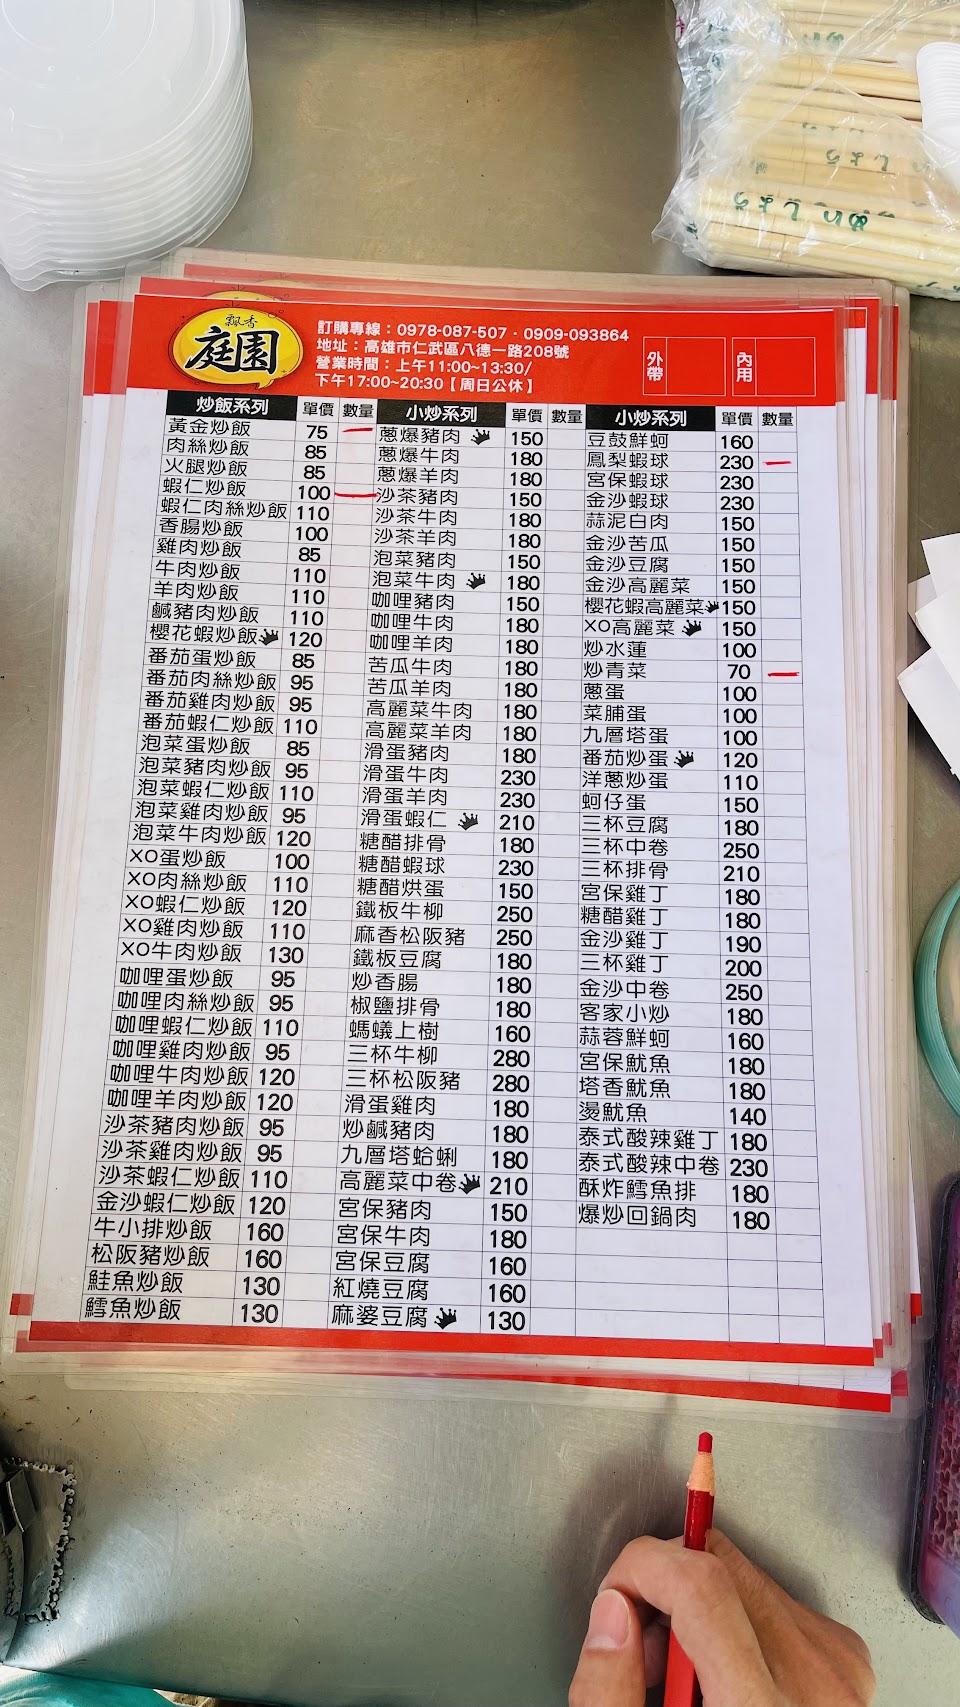 飄香
庭園
訂購專線：0978-087-507．0909-093864
地址：高雄市仁武區八德一路208號
營業時間：上午11:00~13:30/
下午17:00~20:30【周日公休】
外帶
內用
炒飯系列 單價 數量
黃金炒飯 75
肉絲炒飯 85
火腿炒飯 85
蝦仁炒飯 100
蝦仁肉絲炒飯 110
香腸炒飯 100
雞肉炒飯 85
牛肉炒飯 110
羊肉炒飯 110
鹹豬肉炒飯 110
櫻花蝦炒飯 120
番茄蛋炒飯 85
番茄肉絲炒飯 95
番茄雞肉炒飯 95
番茄蝦仁炒飯 110
泡菜蛋炒飯 85
泡菜豬肉炒飯 95
泡菜蝦仁炒飯 110
泡菜雞肉炒飯 95
泡菜牛肉炒飯 120
XO蛋炒飯 100
XO肉絲炒飯 110
XO蝦仁炒飯 120
XO雞肉炒飯 110
XO牛肉炒飯 130
咖哩蛋炒飯 95
咖哩肉絲炒飯 95
咖哩蝦仁炒飯 110
咖哩雞肉炒飯 95
咖哩牛肉炒飯 120
咖哩羊肉炒飯 120
沙茶豬肉炒飯 95
沙茶雞肉炒飯 95
沙茶蝦仁炒飯 110
金沙蝦仁炒飯 120
牛小排炒飯 160
松阪豬炒飯 160
鮭魚炒飯 130
鱈魚炒飯 130
小炒系列 單價 數量
蔥爆豬肉 150
蔥爆牛肉 180
蔥爆羊肉 180
沙茶豬肉 150
沙茶牛肉 180
沙茶羊肉 180
泡菜豬肉 150
泡菜牛肉 180
咖哩豬肉 150
咖哩牛肉 180
咖哩羊肉 180
苦瓜牛肉 180
苦瓜羊肉 180
高麗菜牛肉 180
高麗菜羊肉 180
滑蛋豬肉 180
滑蛋牛肉 230
滑蛋羊肉 230
滑蛋蝦仁 210
糖醋排骨 180
糖醋蝦球 230
糖醋烘蛋 150
鐵板牛柳 250
麻香松阪豬 250
鐵板豆腐 180
炒香腸 180
椒鹽排骨 180
螞蟻上樹 160
三杯牛柳 280
三杯松阪豬 280
滑蛋雞肉 180
炒鹹豬肉 180
九層塔蛤蜊 180
高麗菜中卷 210
宮保豬肉 150
宮保牛肉 180
宮保豆腐 160
紅燒豆腐 160
麻婆豆腐 130
小炒系列 單價 數量
豆鼓鮮蚵 160
鳳梨蝦球 230
宮保蝦球 230
金沙蝦球 230
蒜泥白肉 150
金沙苦瓜 150
金沙豆腐 150
金沙高麗菜 150
櫻花蝦高麗菜 150
XO高麗菜 150
炒水蓮 100
炒青菜 70
蔥蛋 100
菜脯蛋 100
九層塔蛋 100
番茄炒蛋 120
洋蔥炒蛋 110
蚵仔蛋 150
三杯豆腐 180
三杯中卷 250
三杯排骨 210
宮保雞丁 180
糖醋雞丁 180
金沙雞丁 190
三杯雞丁 200
金沙中卷 250
客家小炒 180
蒜蓉鮮蚵 160
宮保魷魚 180
塔香魷魚 180
燙魷魚 140
泰式酸辣雞丁 180
泰式酸辣中卷 230
酥炸鱈魚排 180
爆炒回鍋肉 180